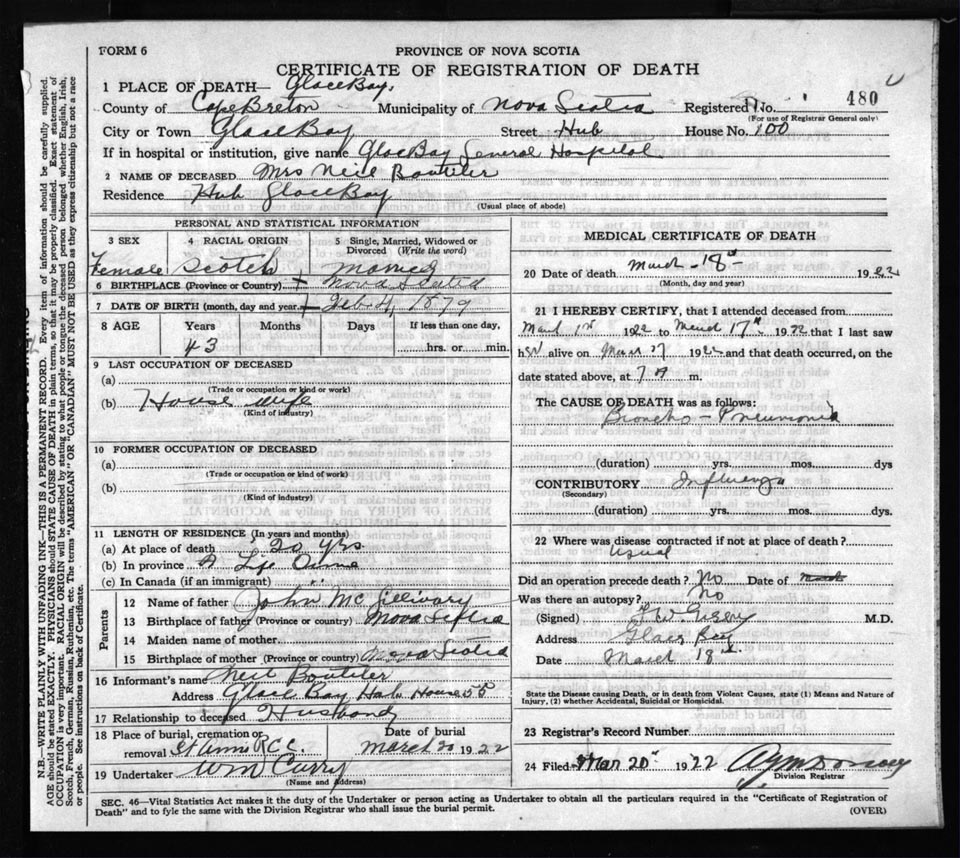 FORM 6
PROVINCE OF NOVA SCOTIA
CERTIFICATE OF REGISTRATION OF DEATH
1 PLACE OF DEATH— Glace Bay.
County of Cape Breton Municipality of Nova Scotia Registered No. 480
(For use of Registrar General only)
City or Town Glace Bay Street Hub House No. 100
If in hospital or institution, give name Glace Bay General Hospital
2 NAME OF DECEASED Mrs Neil Boutilier
Residence Hub Glace Bay
(Usual place of abode)
PERSONAL AND STATISTICAL INFORMATION
3 SEX 4 RACIAL ORIGIN 5 Single, Married, Widowed or Divorced (Write the word)
Female Scotch Married
6 BIRTHPLACE (Province or Country) Nova Scotia
7 DATE OF BIRTH (month, day and year) Feb 4, 1879
8 AGE Years Months Days If less than one day,
43 hrs. or min.
9 LAST OCCUPATION OF DECEASED
(a)
(Trade or occupation or kind of work)
(b) House wife
(Kind of industry)
10 FORMER OCCUPATION OF DECEASED
(a)
(Trade or occupation or kind of work)
(b)
(Kind of industry)
11 LENGTH OF RESIDENCE (In years and months)
(a) At place of death 20 yrs
(b) In province Life Time
(c) In Canada (if an immigrant) "
Parents
12 Name of father John McGillivary
13 Birthplace of father (Province or country) Nova Scotia
14 Maiden name of mother
15 Birthplace of mother (Province or country) Nova Scotia
16 Informant's name Neil Boutilier
Address Glace Bay Hub House 55
17 Relationship to deceased Husband
18 Place of burial, cremation or Date of burial
removal St Anns R C C. March 20 1922
19 Undertaker Wm Curry
(Name and address)
MEDICAL CERTIFICATE OF DEATH
20 Date of death March 18 1922
(Month, day and year)
21 I HEREBY CERTIFY, that I attended deceased from
March 1st 1922 to March 17th 1922 that I last saw
her alive on Mar 17 1922 and that death occurred, on the
date stated above, at
The CAUSE OF DEATH was as follows:
Broncho-Pneumonia
(duration) yrs. mos. dys
CONTRIBUTORY Influenza
(Secondary)
(duration) yrs. mos. dys.
22 Where was disease contracted if not at place of death?
Usual
Did an operation precede death? No Date of
Was there an autopsy? No
(Signed) M.D.
Address Glace Bay
Date March 18
State the Disease causing Death, or in death from Violent Causes, state (1) Means and Nature of
Injury, (2) whether Accidental, Suicidal or Homicidal.
23 Registrar's Record Number
24 Filed Mar 20 1922
Division Registrar
SEC. 46—Vital Statistics Act makes it the duty of the Undertaker or person acting as Undertaker to obtain all the particulars required in the "Certificate of Registration of
Death" and to fyle the same with the Division Registrar who shall issue the burial permit. (OVER)
N.B.—WRITE PLAINLY WITH UNFADING INK—THIS IS A PERMANENT RECORD. Every item of information should be carefully supplied.
AGE should be stated EXACTLY. PHYSICIANS should STATE CAUSE OF DEATH in plain terms, so that it may be properly classified. Exact statement of
OCCUPATION is very important. RACIAL ORIGIN will be described by stating to what people or tongue the deceased person belonged whether English, Irish,
Scotch, French, German, Russian, Ruthenian, etc. The terms "AMERICAN" OR "CANADIAN" MUST NOT BE USED as they express citizenship but not a race
or people. See instructions on back of Certificate.